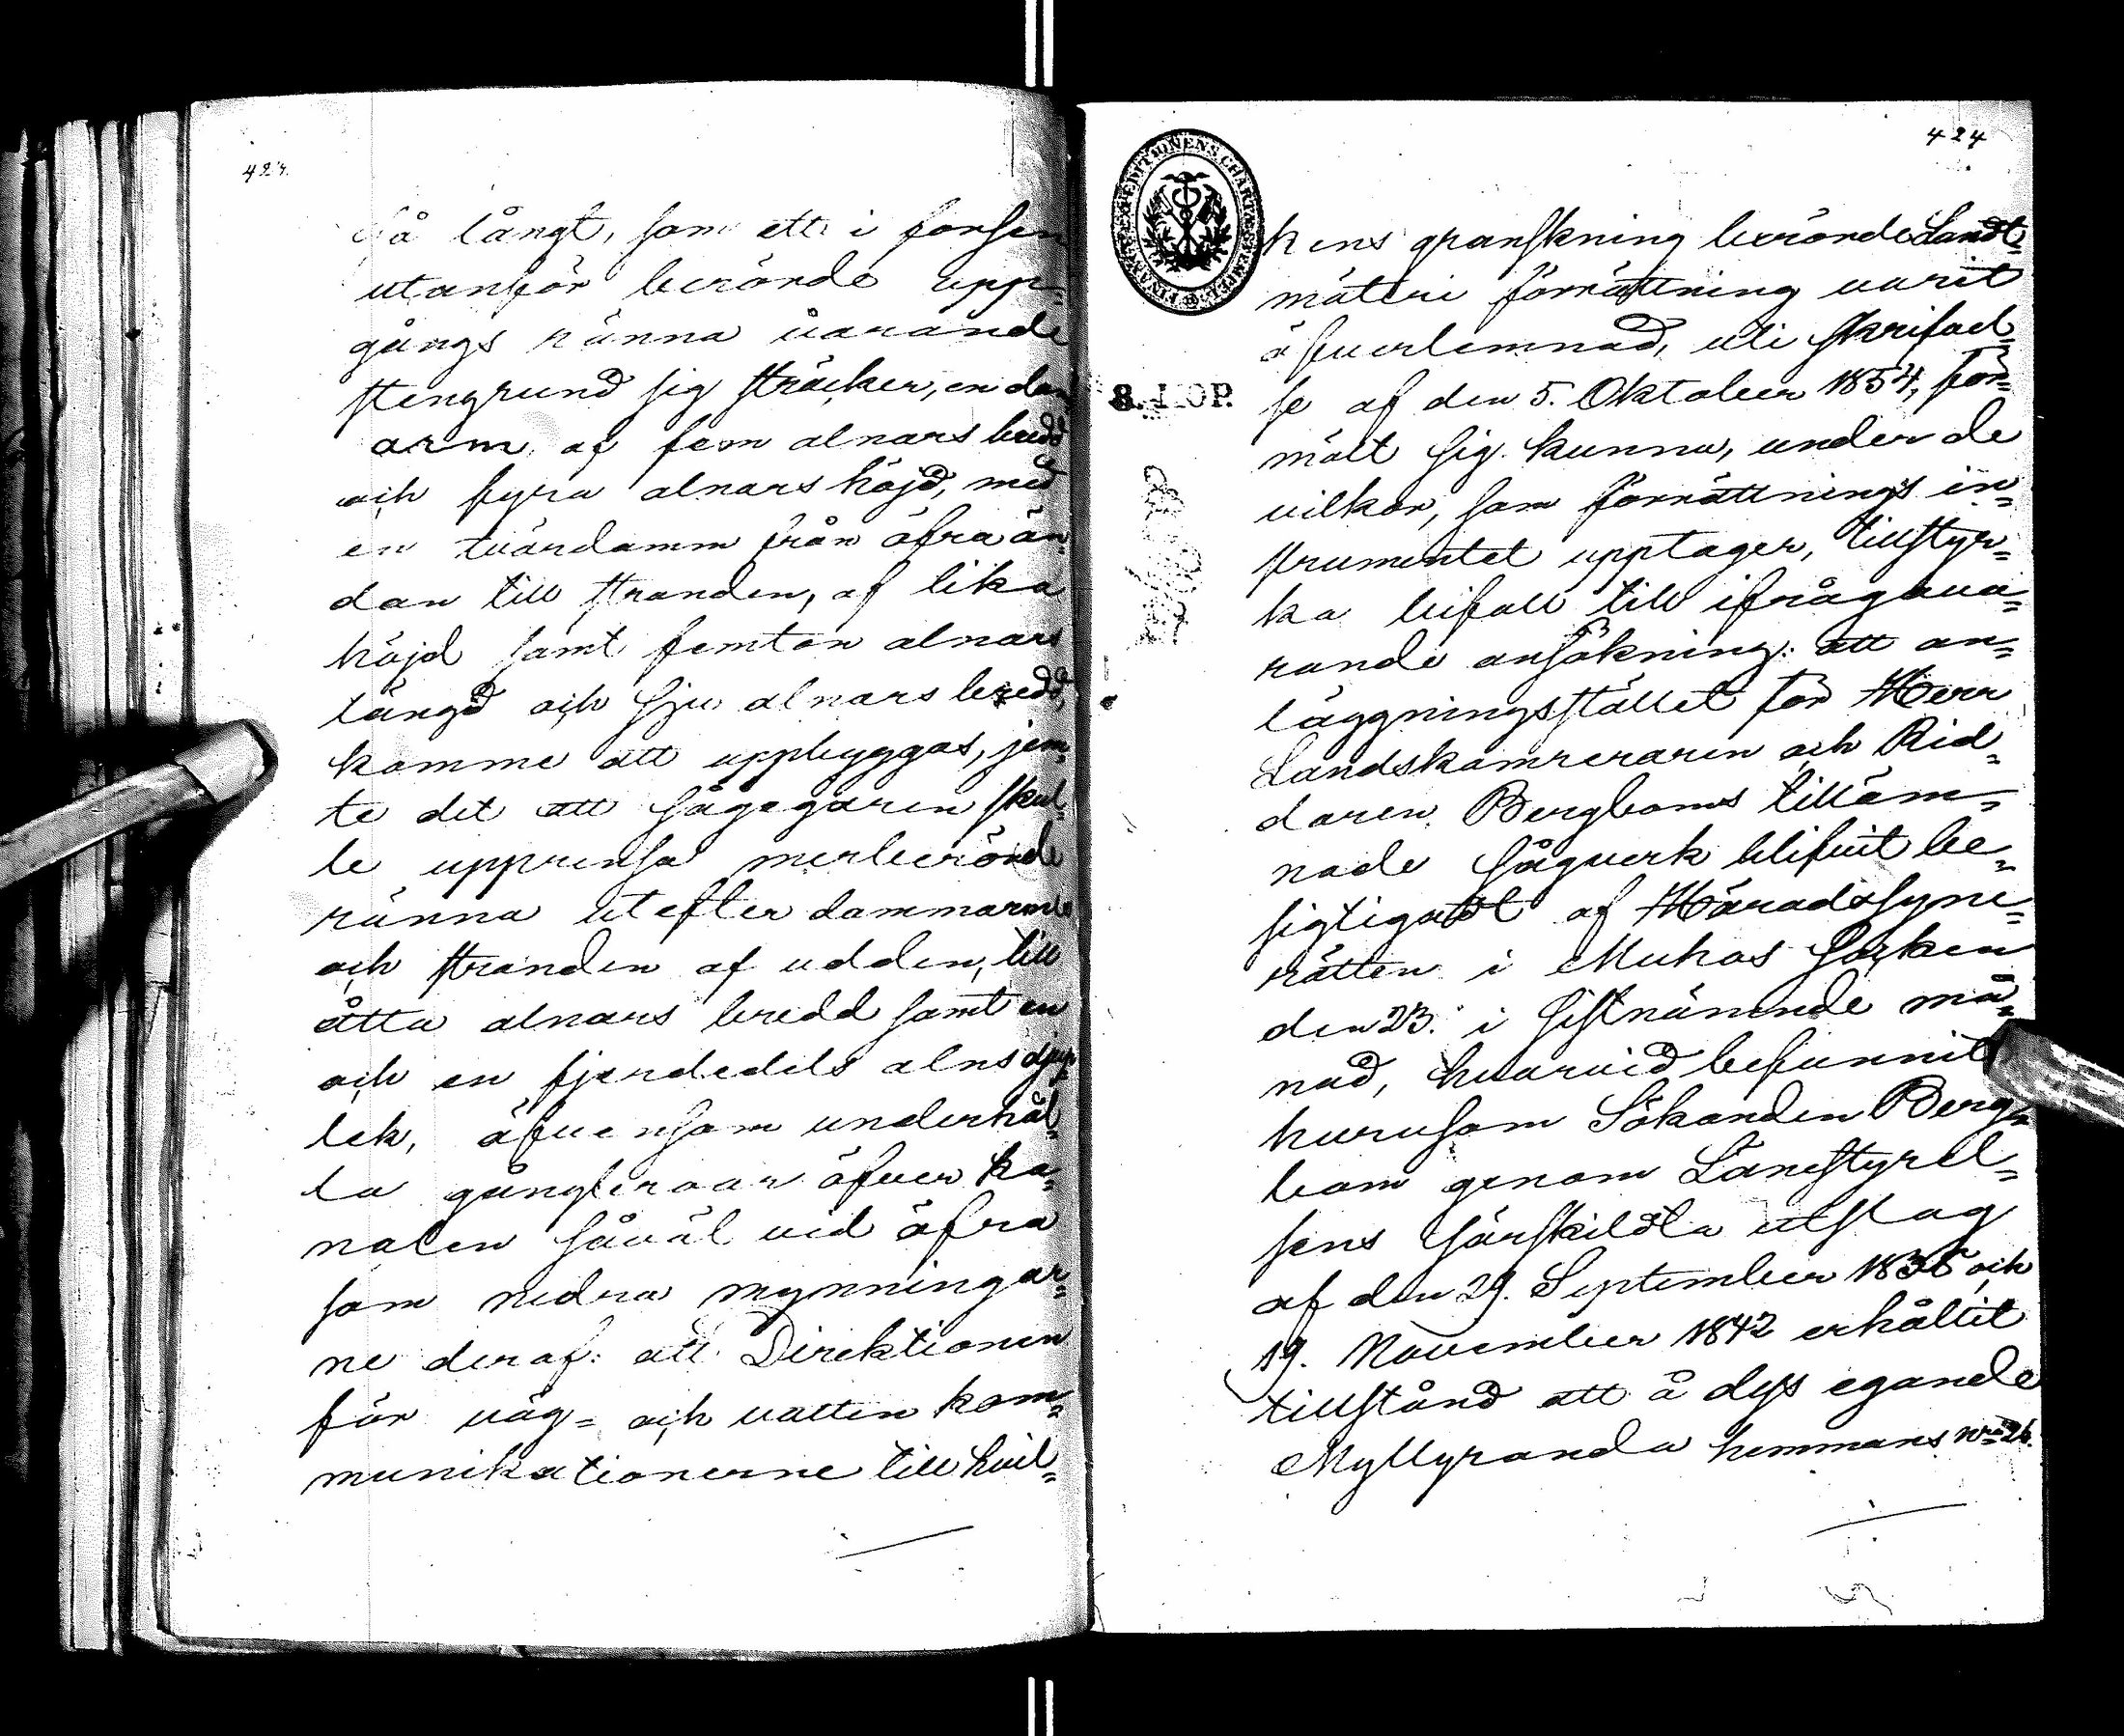 423.
så långt, som ett i forsen
utanför berörde upp=
gångs ränna varande
stengrund sig sträcker, en dam
arm af fem alnars bredd
och fyra alnars höjd, med
en tvärdamm från öfra än=
dan till stranden, af lika
höjd samt femton alnars
längd och sju alnars bredd,
komme att uppbyggas, jem=
te det att sågegaren skul=
le upprensa merberörde
ränna utefter dammarme
och stranden af udden, till
åtta alnars bredd samt en
och en fjerdedels alns djup=
lek, äfvensom underhål=
la gångbroar öfver ka=
nalen såväl vid öfra
som nedra mynningar=
ne deraf: att Direktionen
för väg= och vatten kom=
munikationerne till hvil=
424
FINANCE EXPEDITIONENS CHARTÆ STEMPEL
8. KOP.
kens granskning berörde Landt=
mäteri förrättning varit
öfverlemnad, uti skrifvel=
se af den 5. Oktober 1854, för=
mält sig kunna, under de
vilkor, som förrättnings in=
strumentet upptager, tillstyr=
ka bifall till ifrågava=
rande ansökning: att an=
läggningsstället för Herr
Landskamreraren och Rid=
daren Bergboms tilläm=
nade sågverk blifvit be=
sigtigadt af Häradssyne=
rätten i Muhos Socken
den 23. i sistnämnde må=
nad, hvarvid befunnits
hurusom Sökanden Berg=
bom genom Länstyrel=
sens särskildta utslag
af den 29. September 1838 och
19. November 1842 erhållit
tillstånd att å dess egande
Myllyranda hemmans Nro 26.